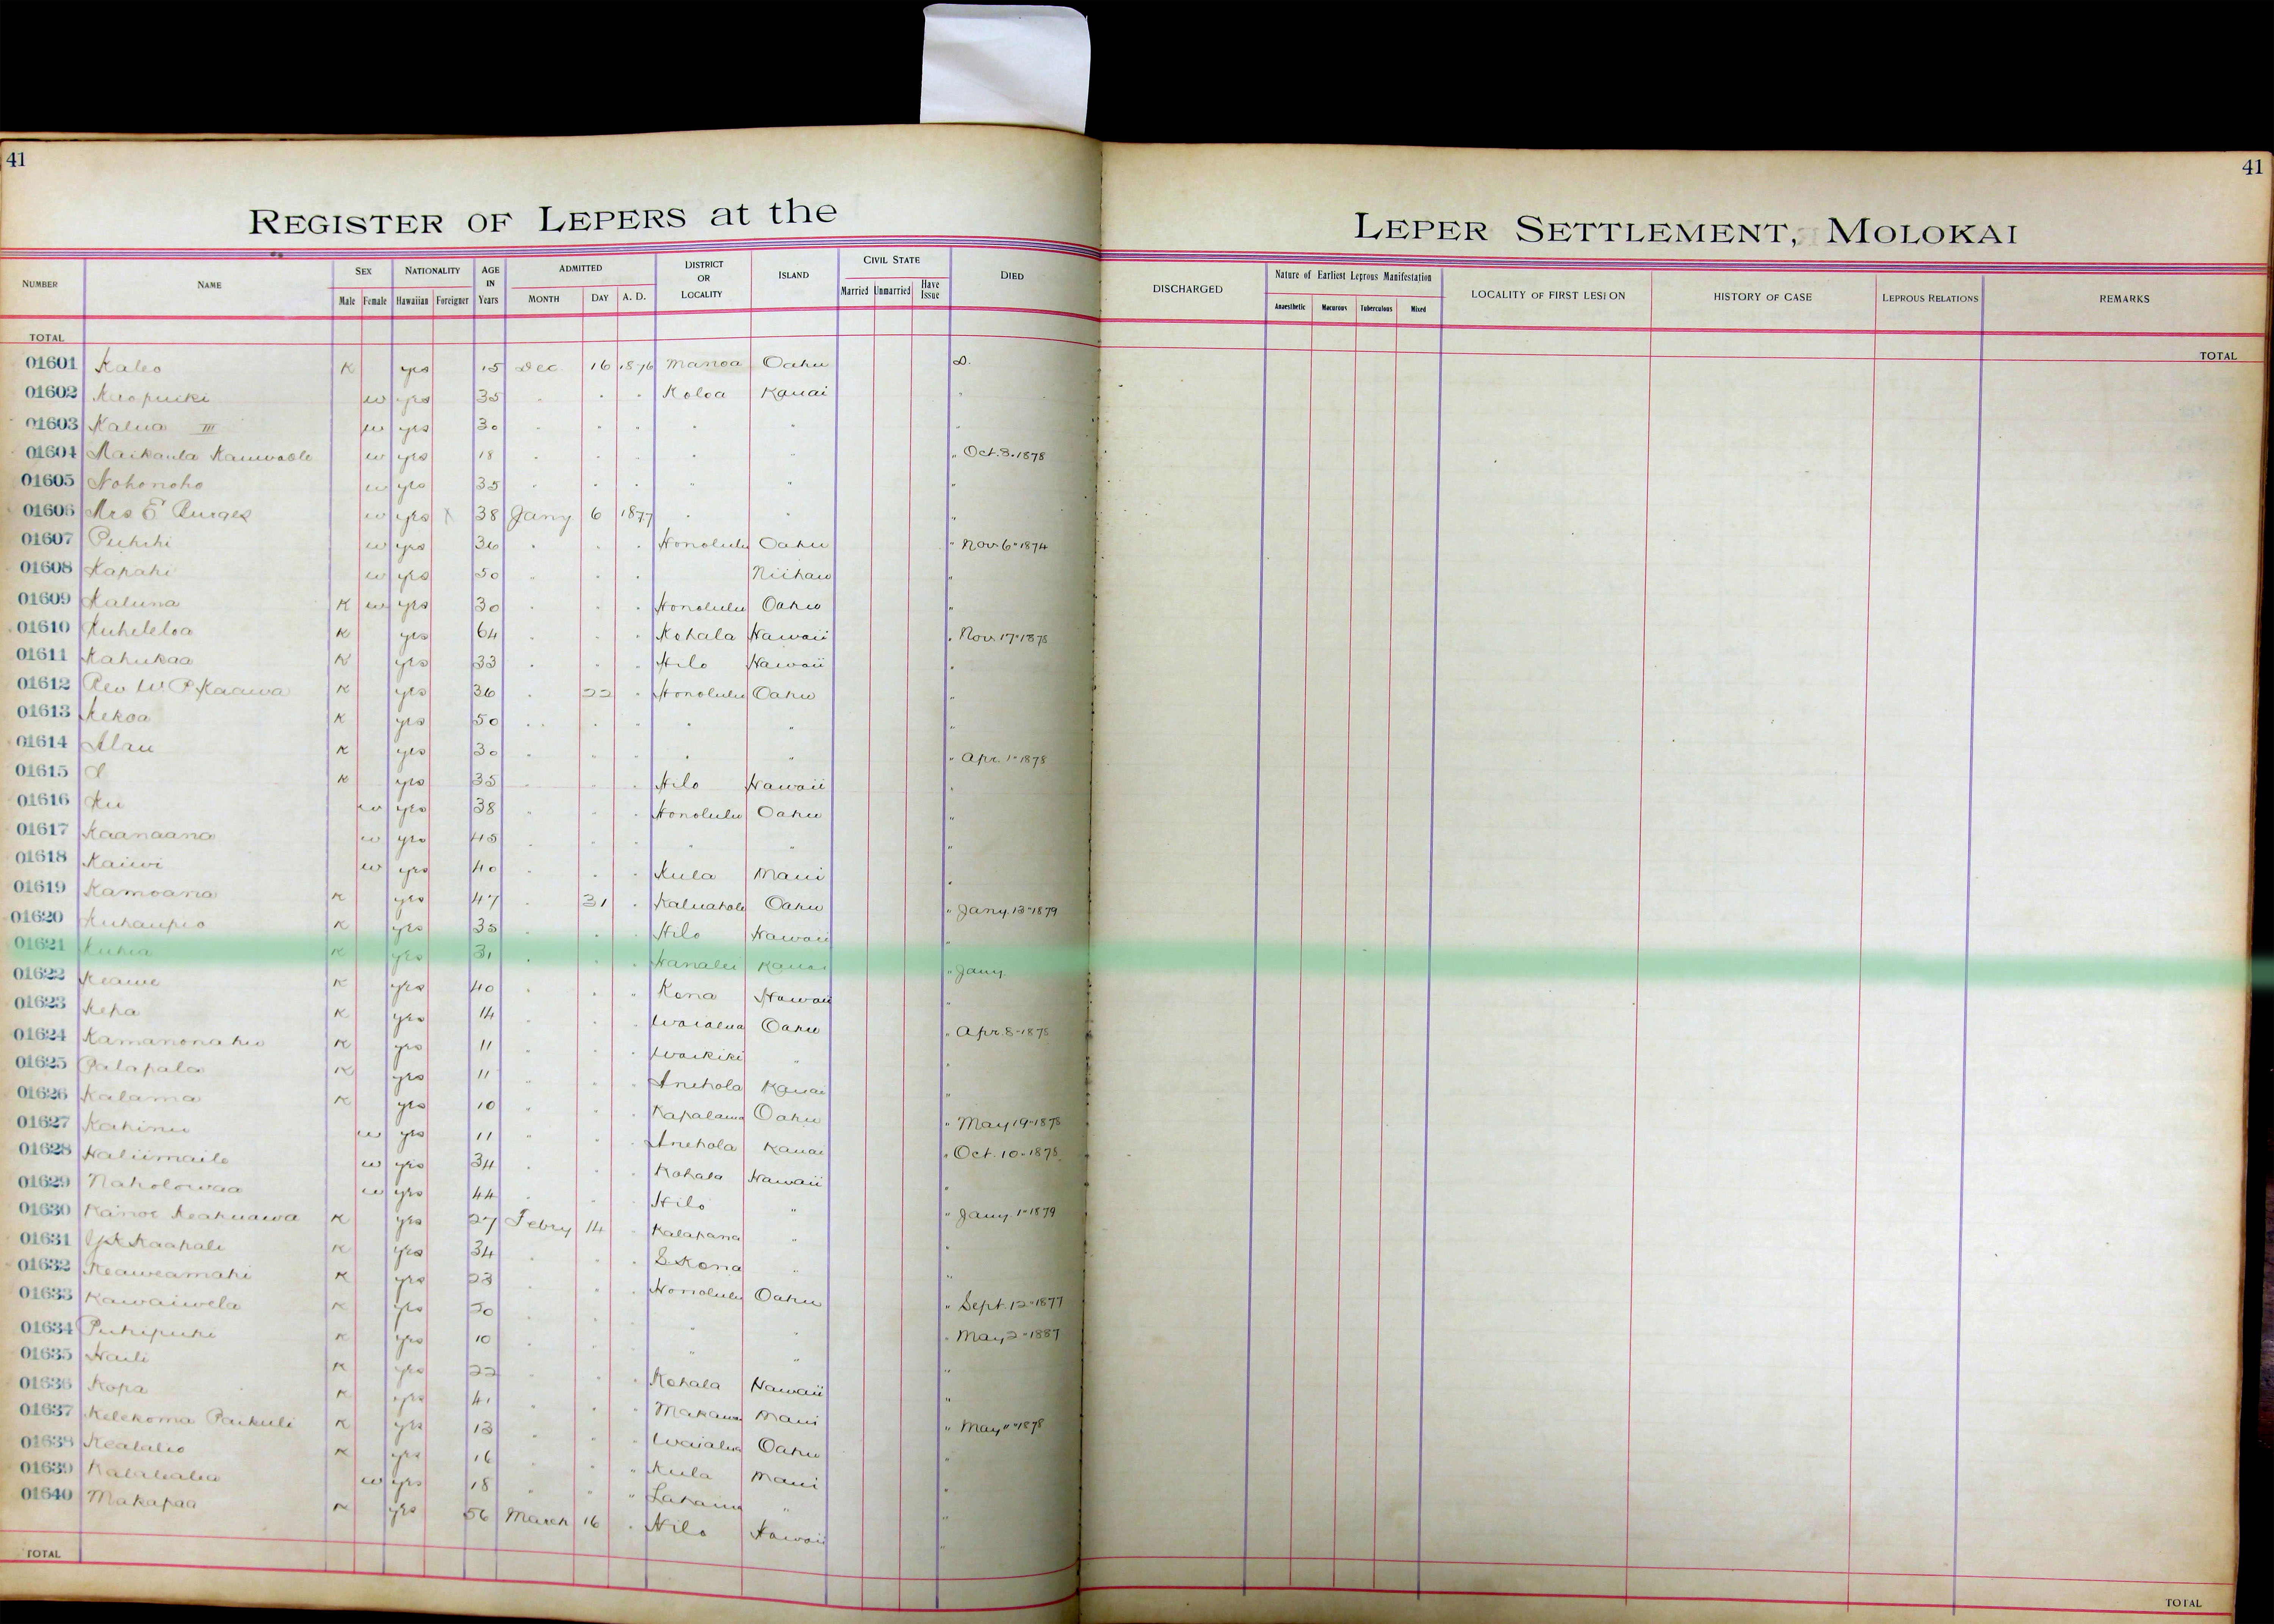 41
41
REGISTER OF LEPERS at the
LEPER SETTLEMENT, MOLOKAI
NUMBER NAME SEX Male Female NATIONALITY Hawaiian Foreigner AGE IN Years ADMITTED MONTH DAY A. D. DISTRICT OR LOCALITY ISLAND CIVIL STATE Married Unmarried Have Issue DIED
DISCHARGED Nature of Earliest Leprous Manifestation Anaesthetic Macurous Tuberculous Mixed LOCALITY OF FIRST LESION HISTORY OF CASE LEPROUS RELATIONS REMARKS
TOTAL
TOTAL
01601 Kaleo K yes 15 Dec. 16 1876 Manoa Oahu D.
01602 w yes 35 " " " Koloa Kauai "
01603 Kalua III w yes 30 " " " " " "
01604 w yes 18 " " " " " " Oct. 3. 1878
01605 Nohonoho w yes 35 " " " " " "
01606 Mrs E Burges w yes X 38 Jany 6 1877 " " "
01607 Puhihi w yes 36 " " " Honolulu Oahu " Nov 6" 1874
01608 Kapahi w yes 50 " " " Niihau "
01609 Kaluna K w yes 30 " " " Honolulu Oahu "
01610 Kuheleloa K yes 64 " " " Kohala Hawaii " Nov. 17" 1878
01611 Kahukaa K yes 33 " " " Hilo Hawaii "
01612 Rev W. P Kaawa K yes 36 " 22 " Honolulu Oahu "
01613 Kekoa K yes 50 " " " " " "
01614 Alau K yes 30 " " " " " " Apr. 1" 1878
01615 K yes 35 " " " Hilo Hawaii "
01616 Ku w yes 38 " " " Honolulu Oahu "
01617 Kaanaana w yes 45 " " " " " "
01618 Kaiwi w yes 40 " " " Kula Maui "
01619 Kamoana K yes 47 " 31 " Kaluahole Oahu " Jany. 13" 1879
01620 Kuhaupio K yes 35 " " " Hilo Hawaii "
01621 Kuhia K yes 31 " " " Hanalei Kauai " Jany.
01622 Keawe K yes 40 " " " Kona Hawaii "
01623 Kepa K yes 14 " " " Waialua Oahu " Apr. 8" 1878
01624 K yes 11 " " " Waikiki " "
01625 Palapala K yes 11 " " " Anehola Kauai "
01626 Kalama K yes 10 " " " Kapalama Oahu " May 19" 1878
01627 Kahinu w yes 11 " " " Anehola Kauai " Oct. 10" 1878
01628 Haliimaile w yes 34 " " " Kohala Hawaii "
01629 Naholowaa w yes 44 " " " Hilo " " Jany. 1" 1879
01630 Kainoe Keakuawa K yes 27 Febry 14 " Kalapana " "
01631 Kaapale K yes 34 " " " S. Kona " "
01632 Keaweamahi K yes 23 " " " Honolulu Oahu " Sept. 12" 1877
01633 Kawaiwela K yes 20 " " " " " " May 2" 1887
01634 Puhipuhi K yes 10 " " " " " "
01635 Haili K yes 22 " " " Kohala Hawaii "
01636 Kopa K yes 41 " " " Makawao Maui " May 11" 1878
01637 Kelekoma Paikuli K yes 13 " " " Waialua Oahu "
01638 Kealaleo K yes 16 " " " Kula Maui "
01639 w yes 18 " " " Lahaina " "
01640 Makapaa K yes 56 March 16 " Hilo Hawaii "
TOTAL
TOTAL